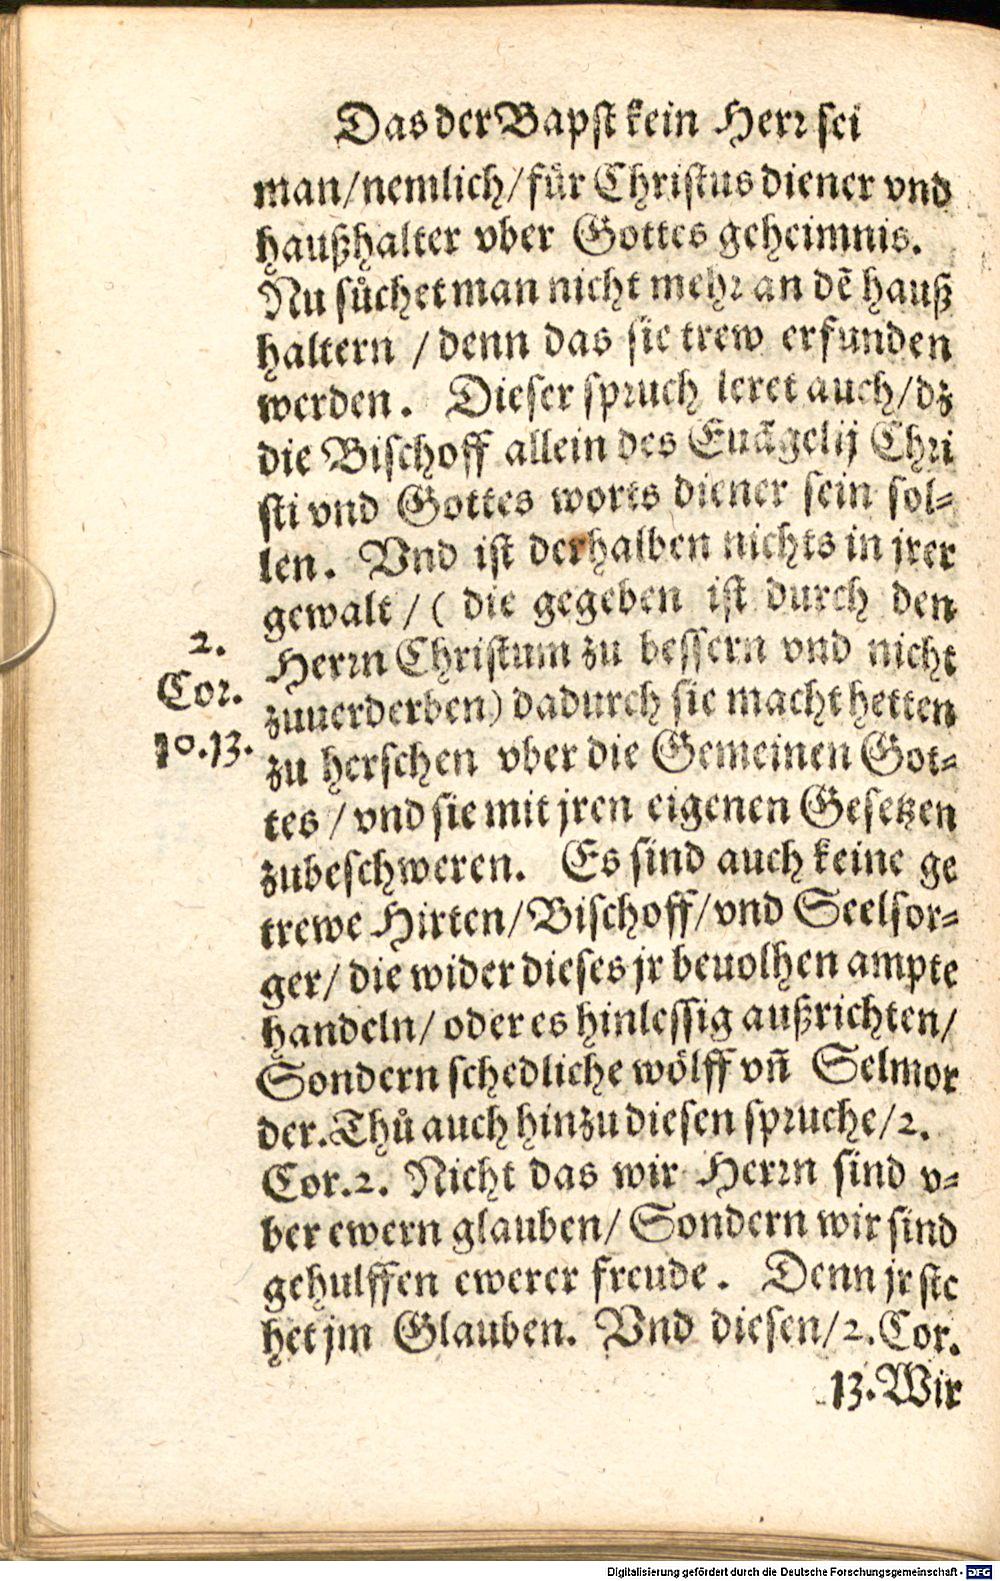 Das der Bapst kein Herr sei
man/nemlich/für Christus diener vnd
haußhalter vber Gottes geheimnis.
Nu sůchet man nicht mehr an dẽ hauß
haltern / denn das sie trew erfunden
werden. Dieser spruch leret auch/dz
die Bischoff allein des Euãgelij Chri
sti vnd Gottes worts diener sein sol-
len. Vnd ist derhalben nichts in jrer
gewalt / ( die gegeben ist durch den
2.
Cor.
10.13.
Herrn Christum zu bessern vnd nicht
zuuerderben) dadurch sie macht hetten
zu herschen vber die Gemeinen Got-
tes / vnd sie mit jren eigenen Gesetzen
zubeschweren. Es sind auch keine ge
trewe Hirten/Bischoff/vnd Seelsor-
ger/ die wider dieses jr beuolhen ampte
handeln/ oder es hinlessig außrichten/
Sondern schedliche wölff vñ Selmor
der. Thů auch hinzu diesen spruche/2.
Cor.2. Nicht das wir Herrn sind v-
ber ewern glauben/ Sondern wir sind
gehulffen ewerer freude. Denn jr ste
het jm Glauben. Vnd diesen/2.Cor.
13.Wir
Digitalisierung gefördert durch die Deutsche Forschungsgemeinschaft - DFG